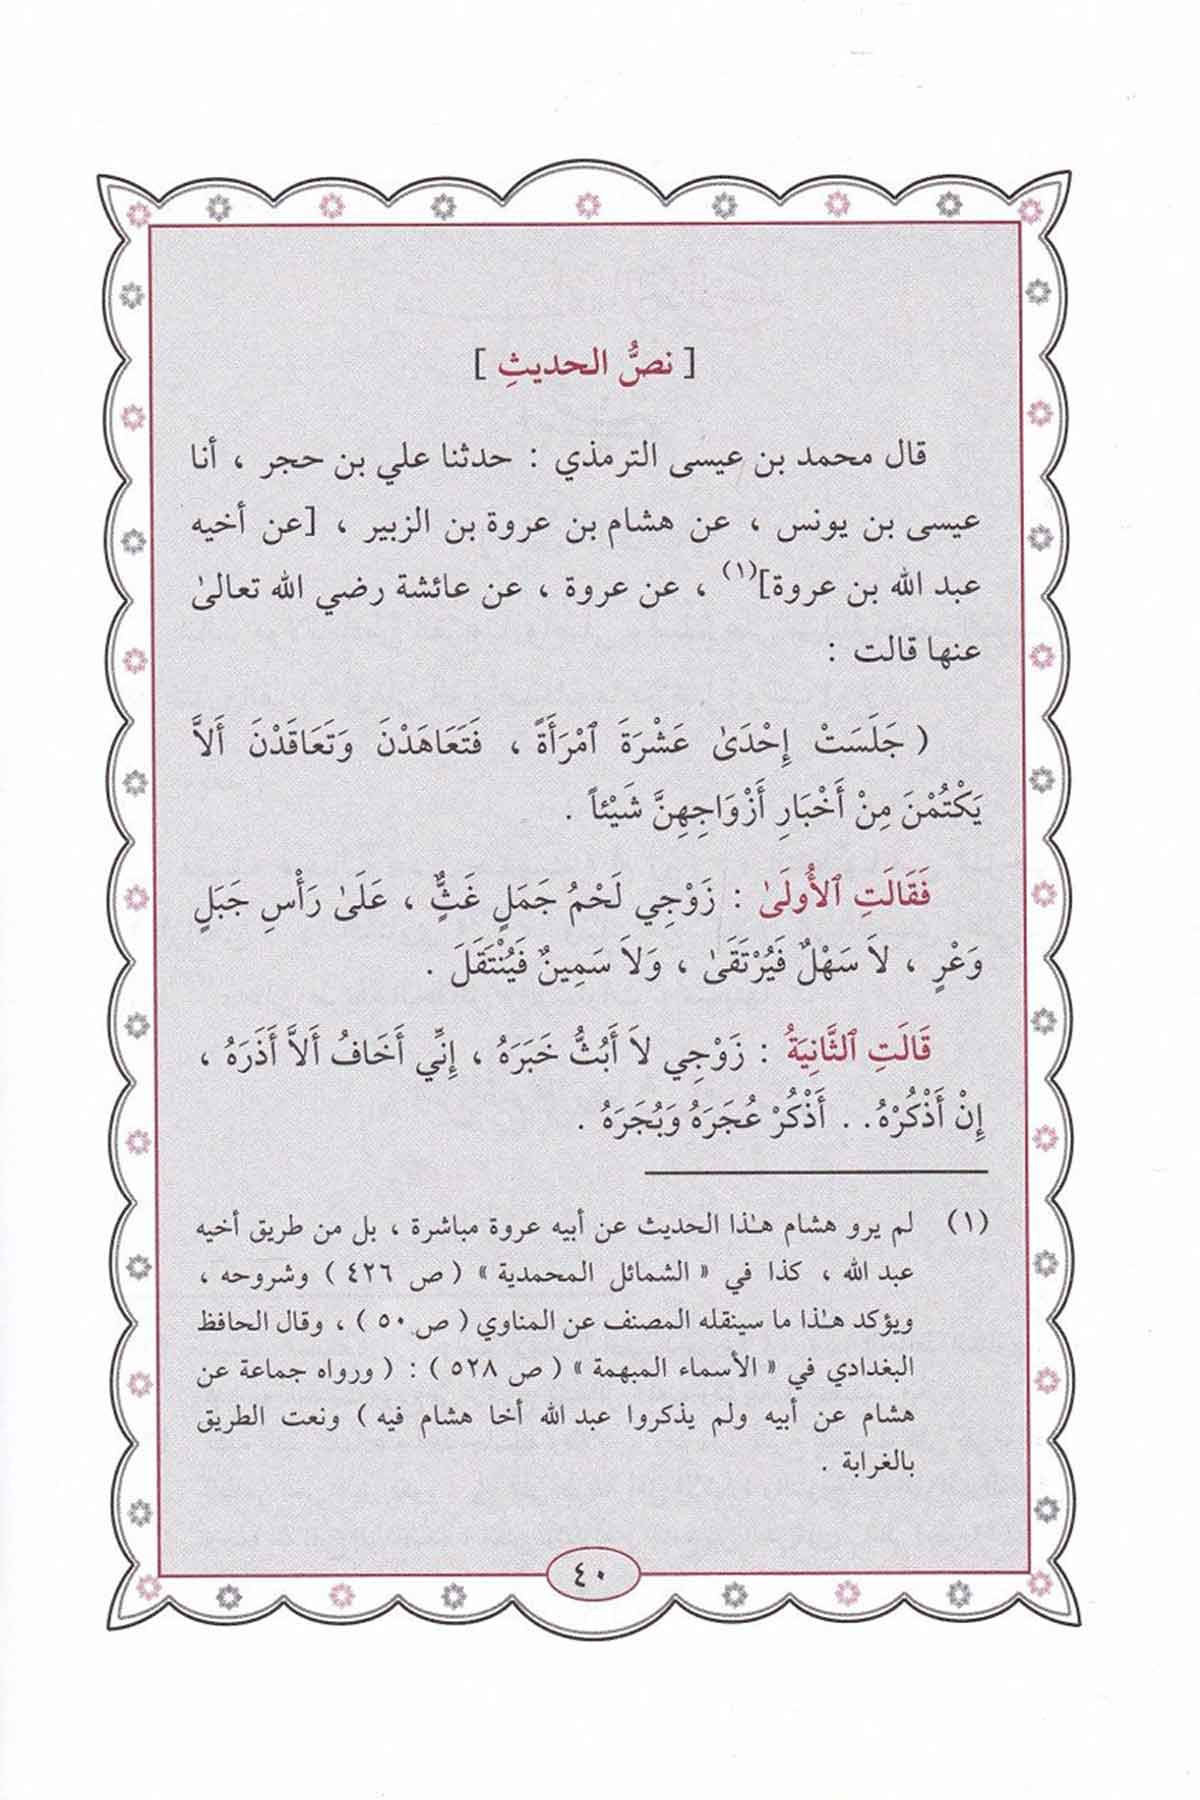 [ نصُّ الحديثِ ]
قال محمد بن عيسى الترمذي : حدثنا علي بن حجر ، أنا
عيسى بن يونس ، عن هشام بن عروة بن الزبير ، [عن أخيه
عبد الله بن عروة](١) ، عن عروة ، عن عائشة رضي الله تعالىٰ
عنها قالت :
( جَلَسَتْ إِحْدَىٰ عَشْرَةَ ٱمْرَأَةً ، فَتَعَاهَدْنَ وَتَعَاقَدْنَ أَلاَّ
يَكْتُمْنَ مِنْ أَخْبَارِ أَزْوَاجِهِنَّ شَيْئاً .
فَقَالَتِ ٱلأُولَىٰ : زَوْجِي لَحْمُ جَمَلٍ غَثٌّ ، عَلَىٰ رَأْسِ جَبَلٍ
وَعْرٍ ، لاَ سَهْلٌ فَيُرْتَقَىٰ ، وَلاَ سَمِينٌ فَيُنْتَقَلَ .
قَالَتِ ٱلثَّانِيَةُ : زَوْجِي لاَ أَبُثُّ خَبَرَهُ ، إِنِّي أَخَافُ أَلاَّ أَذَرَهُ ،
إِنْ أَذْكُرْهُ . . أَذْكُرْ عُجَرَهُ وَبُجَرَهُ .
(١) لم يرو هشام هـٰذا الحديث عن أبيه عروة مباشرة ، بل من طريق أخيه
عبد الله ، كذا في « الشمائل المحمدية » ( ص ٤٢٦ ) وشروحه ،
ويؤكد هـٰذا ما سينقله المصنف عن المناوي ( ص ٥٠ ) ، وقال الحافظ
البغدادي في « الأسماء المبهمة » ( ص ٥٢٨ ) : ( ورواه جماعة عن
هشام عن أبيه ولم يذكروا عبد الله أخا هشام فيه ) ونعت الطريق
بالغرابة .
٤٠